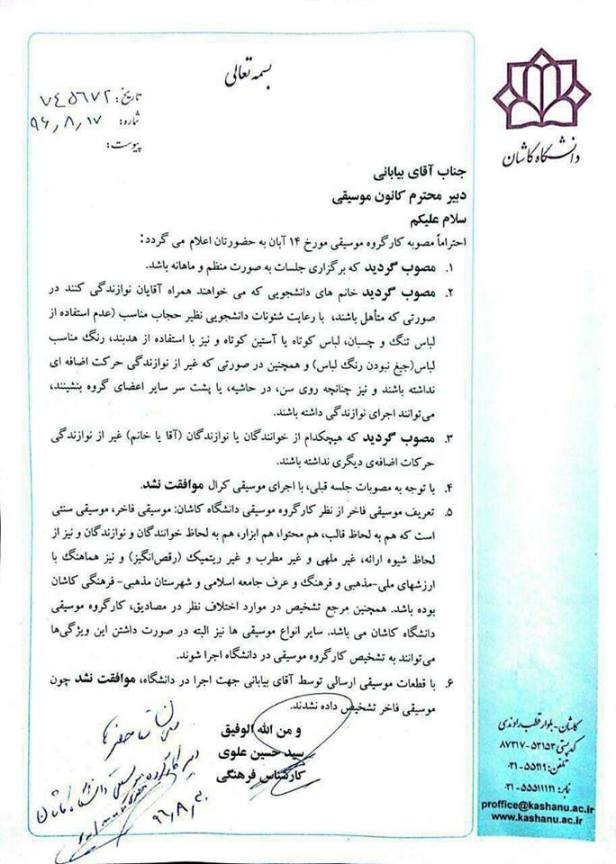 بسمه تعالی
تاریخ: ۷٤۵۶۷۲
شماره: ۹۶٫۸٫۱۷
پیوست:
دانشگاه کاشان
جناب آقای بیابانی
دبیر محترم کانون موسیقی
سلام علیکم
احتراماً مصوبه کارگروه موسیقی مورخ ۱۴ آبان به حضورتان اعلام می گردد:
۱. مصوب گردید که برگزاری جلسات به صورت منظم و ماهانه باشد.
۲. مصوب گردید خانم های دانشجویی که می خواهند همراه آقایان نوازندگی کنند در
صورتی که متأهل باشند، با رعایت شئونات دانشجویی نظیر حجاب مناسب (عدم استفاده از
لباس تنگ و چسبان، لباس کوتاه یا آستین کوتاه و نیز با استفاده از هدبند، رنگ مناسب
لباس(جیغ نبودن رنگ لباس) و همچنین در صورتی که غیر از نوازندگی حرکت اضافه ای
نداشته باشند و نیز چنانچه روی سن، در حاشیه، یا پشت سر سایر اعضای گروه بنشینند،
می‌توانند اجرای نوازندگی داشته باشند.
۳. مصوب گردید که هیچکدام از خوانندگان یا نوازندگان (آقا یا خانم) غیر از نوازندگی
حرکات اضافه‌ی دیگری نداشته باشند.
۴. با توجه به مصوبات جلسه قبلی، با اجرای موسیقی کرال موافقت نشد.
۵. تعریف موسیقی فاخر از نظر کارگروه موسیقی دانشگاه کاشان: موسیقی فاخر، موسیقی سنتی
است که هم به لحاظ قالب، هم محتوا، هم ابزار، هم به لحاظ خوانندگان و نوازندگان و نیز از
لحاظ شیوه ارائه، غیر ملهی و غیر مطرب و غیر ریتمیک (رقص‌انگیز) و نیز هماهنگ با
ارزشهای ملی-مذهبی و فرهنگ و عرف جامعه اسلامی و شهرستان مذهبی- فرهنگی کاشان
بوده باشد. همچنین مرجع تشخیص در موارد اختلاف نظر در مصادیق، کارگروه موسیقی
دانشگاه کاشان می باشد. سایر انواع موسیقی ها نیز البته در صورت داشتن این ویژگی‌ها
می‌توانند به تشخیص کارگروه موسیقی در دانشگاه اجرا شوند.
۶. با قطعات موسیقی ارسالی توسط آقای بیابانی جهت اجرا در دانشگاه، موافقت نشد چون
موسیقی فاخر تشخیص داده نشدند.
و من الله التوفیق
سید حسین علوی
کارشناس فرهنگی
کاشان-بلوار قطب راوندی
کدپستی: ۵۳۱۵۳-۸۷۳۱۷
نمابر: ۵۵۵۱۱۱۲۱-۰۳۱
proffice@kashanu.ac.ir
www.kashanu.ac.ir